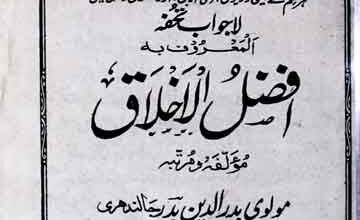 لاجواب تحفہ
المعروف بہ
افضل الاخلاق
مؤلفہ و مرتبہ
مولوی بدرالدین بدر جالندھری